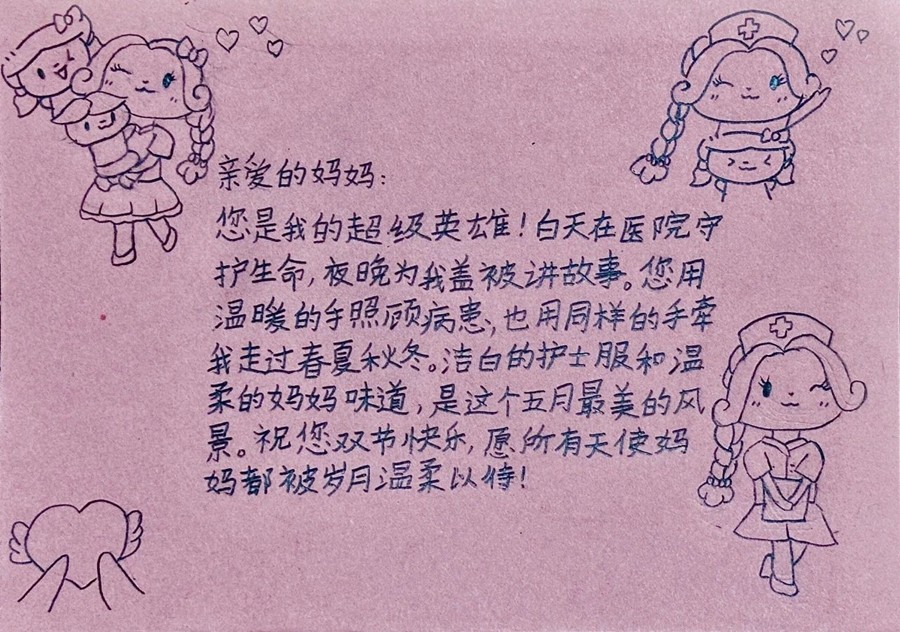 亲爱的妈妈：
您是我的超级英雄！白天在医院守
护生命，夜晚为我盖被讲故事。您用
温暖的手照顾病患，也用同样的手牵
我走过春夏秋冬。洁白的护士服和温
柔的妈妈味道，是这个五月最美的风
景。祝您双节快乐，愿所有天使妈
妈都被岁月温柔以待！